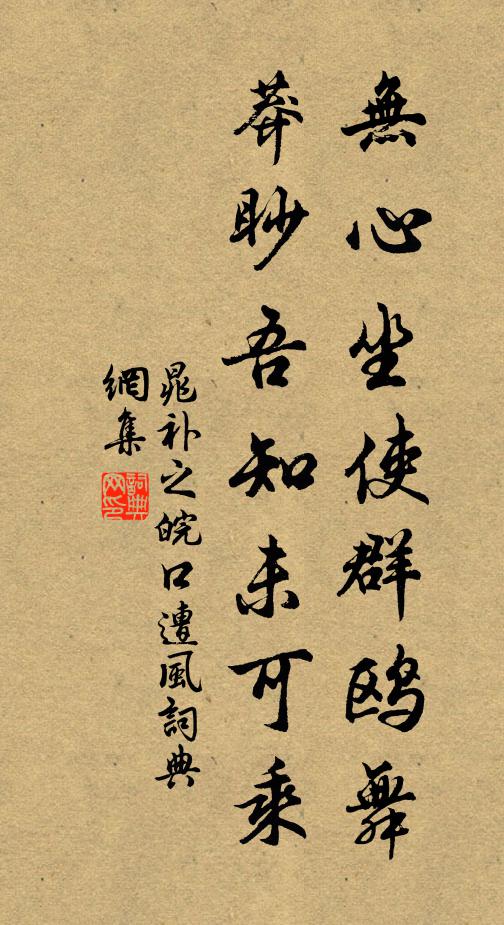 無心坐使群鷗舞
莽眇吾知未可乘
晁补之皖口遭風詞典
網集
詞典
网印